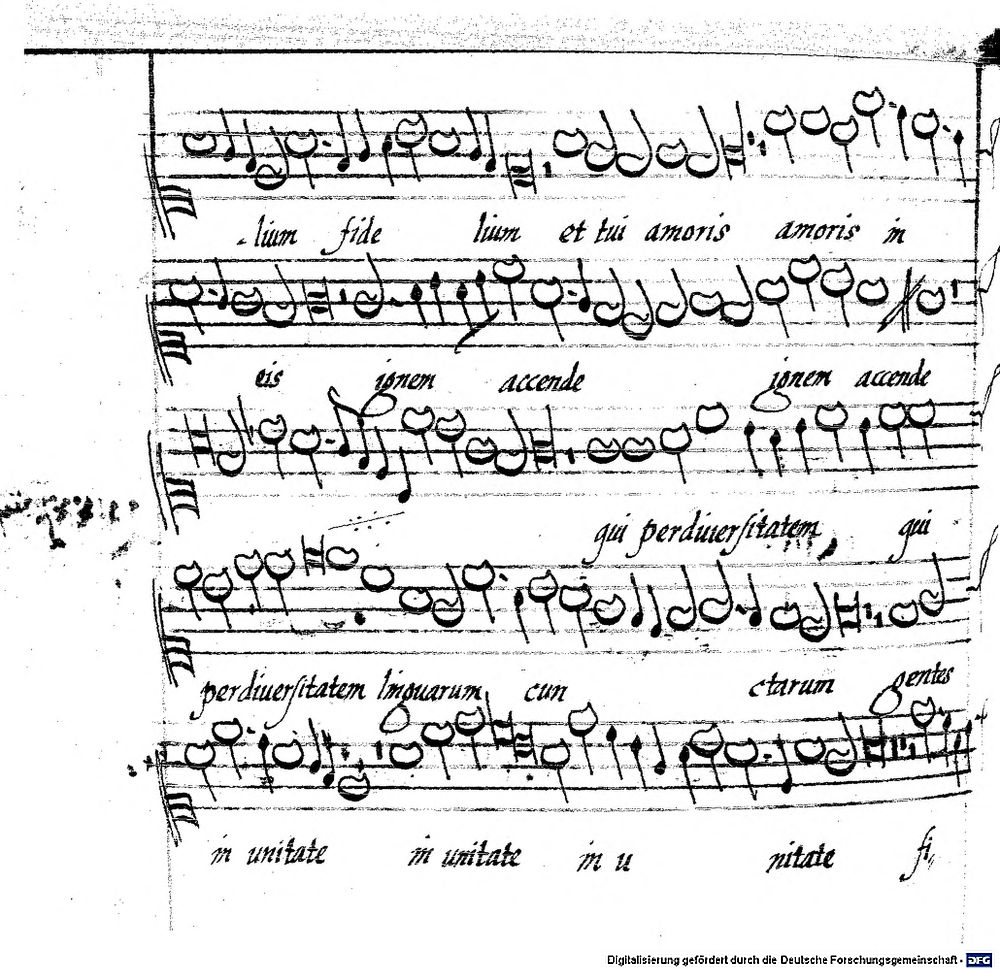 -lium fide lium et tui amoris amoris in
eis ignem accende ignem accende
qui perdiuersitatem qui
perdiuersitatem linguarum cun ctarum gentes
in unitate in unitate in u nitate fi,
Digitalisierung gefördert durch die Deutsche Forschungsgemeinschaft - DFG